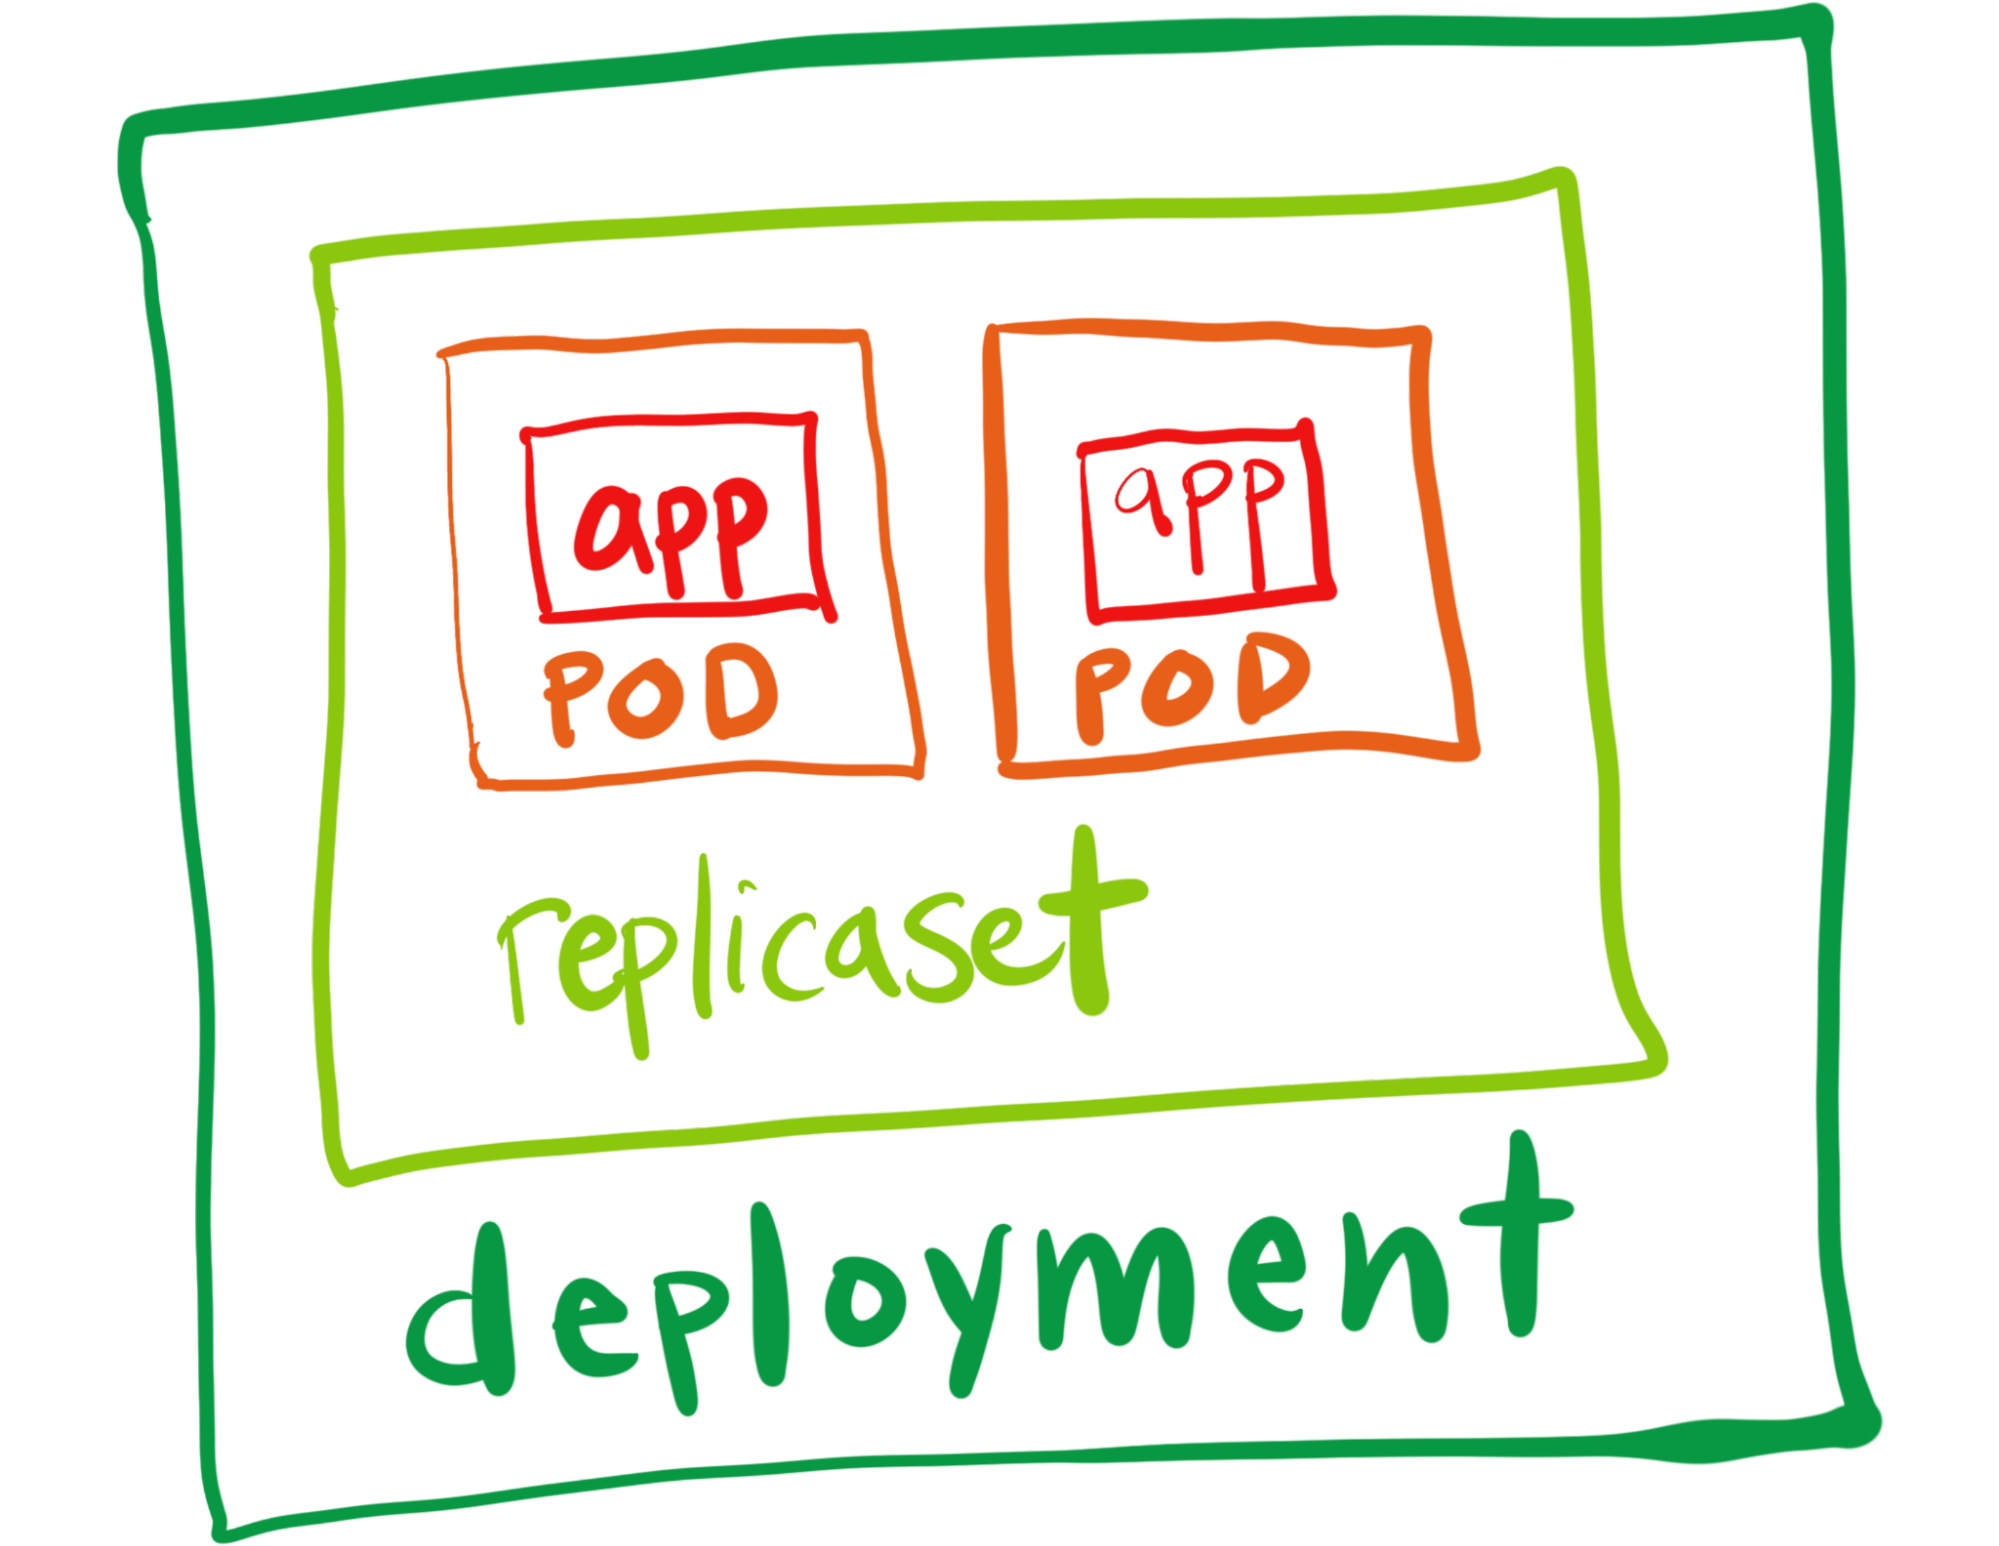 app app
POD POD
replicaset
deployment